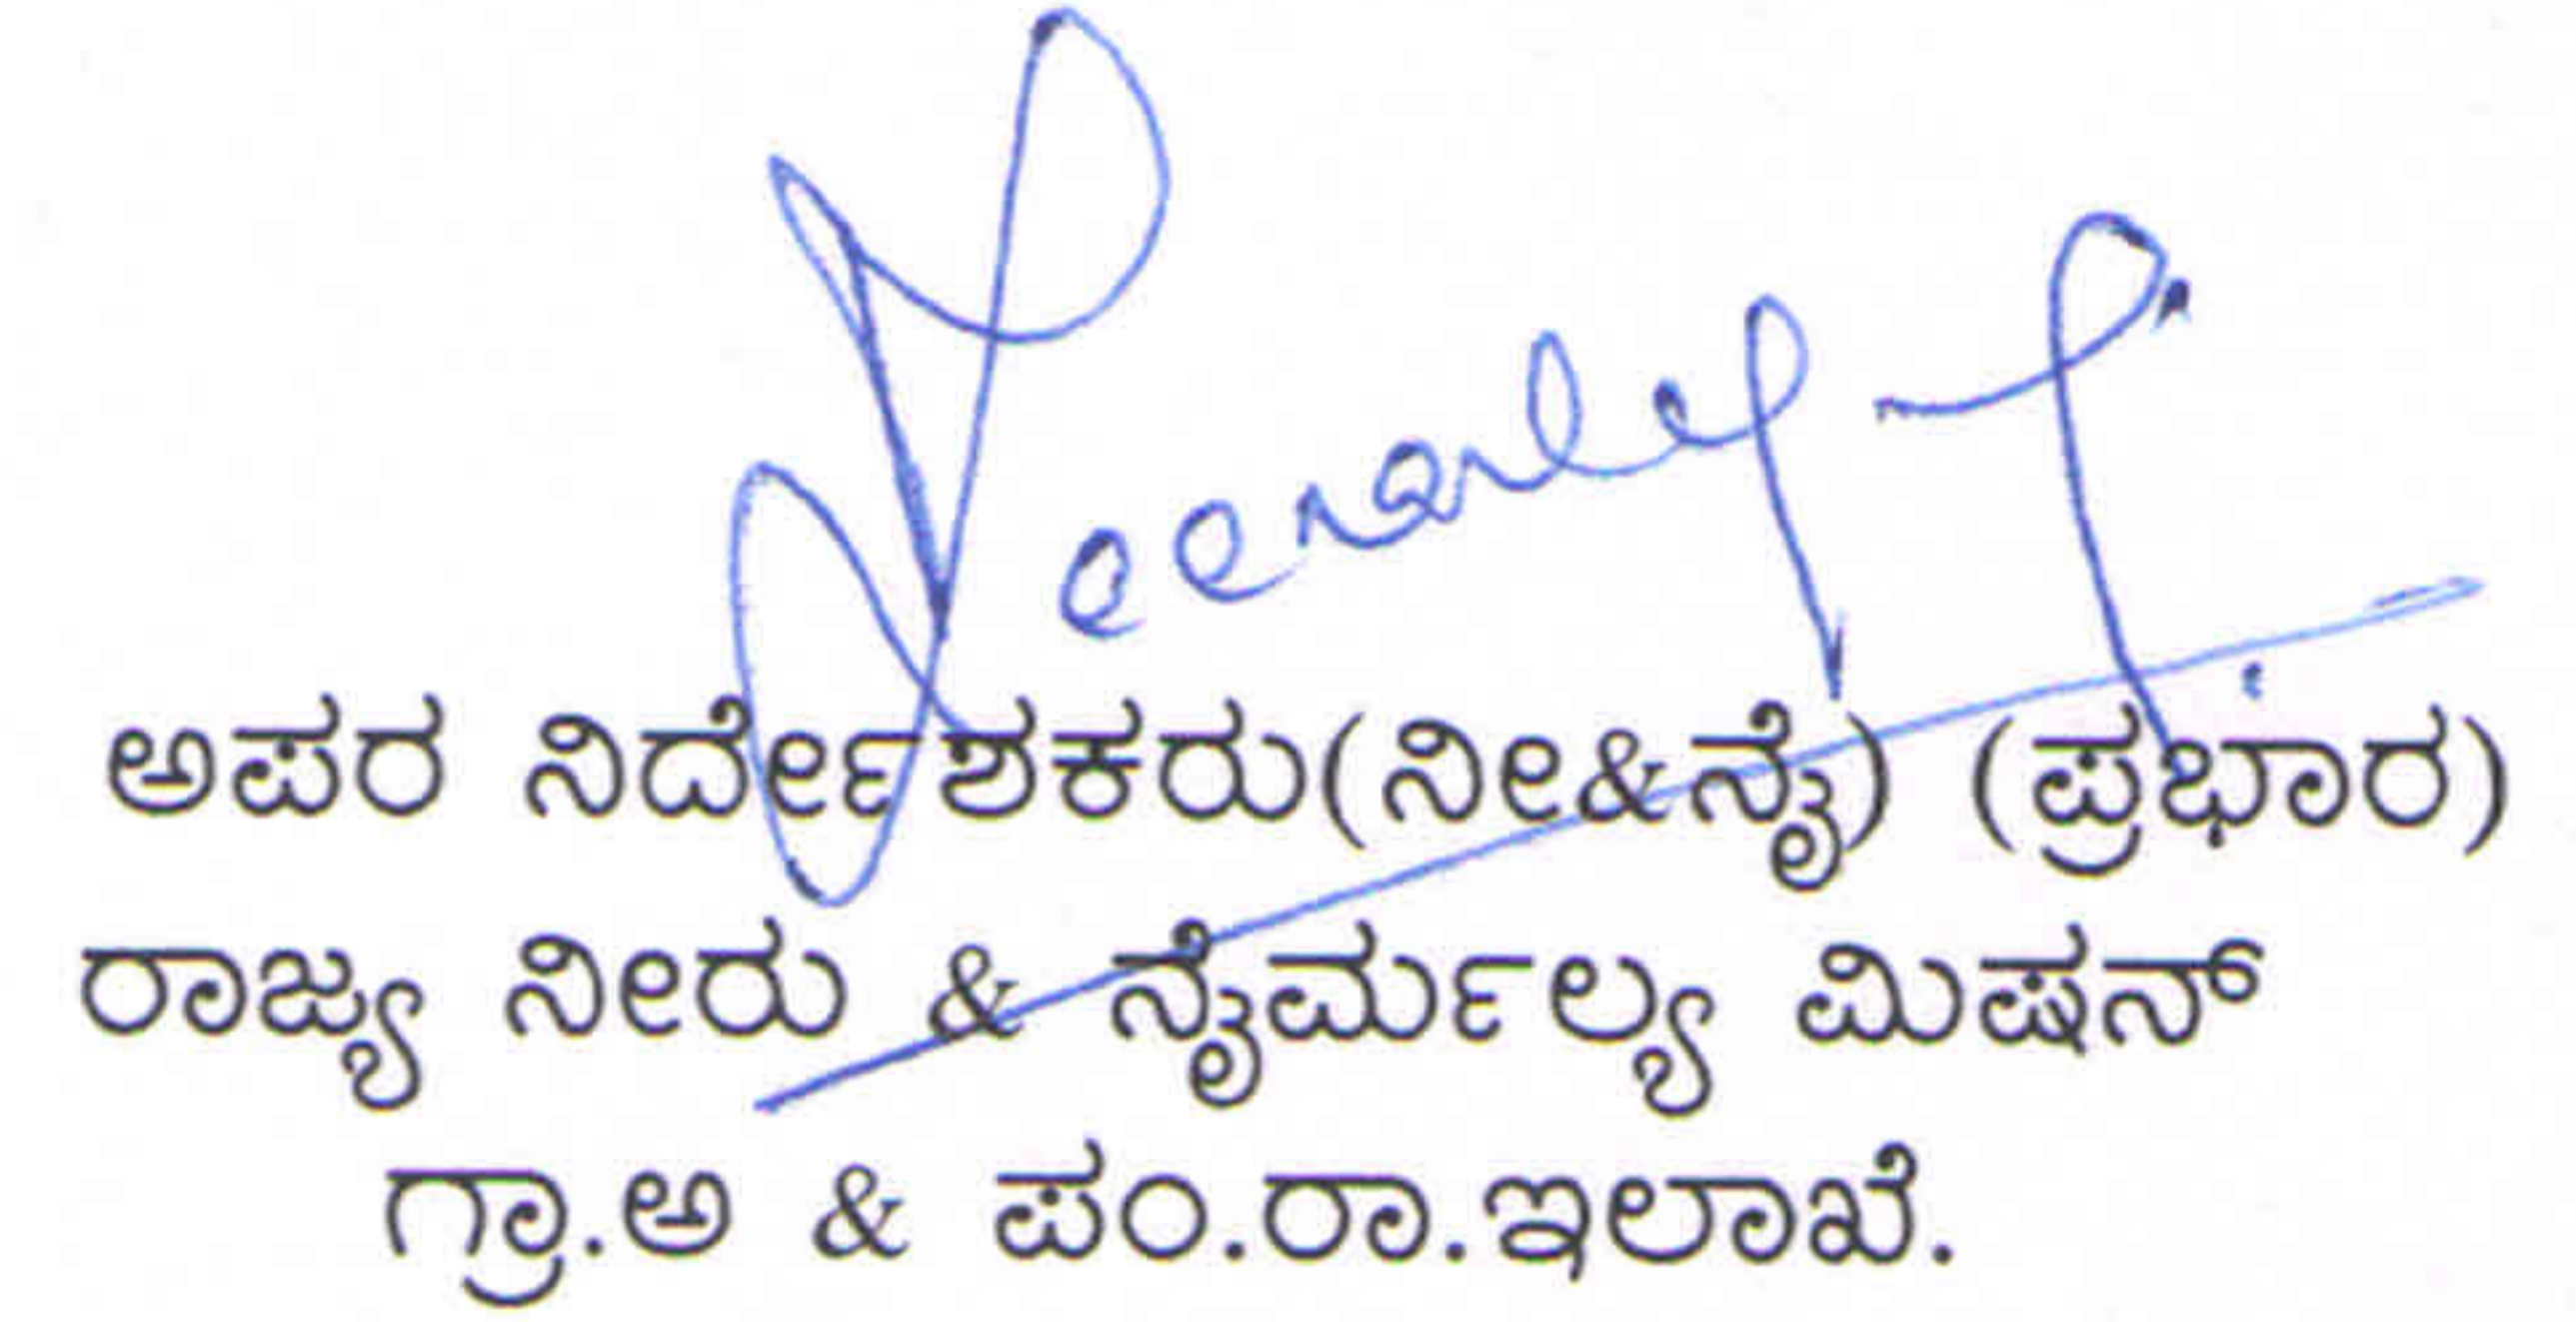 ಅಪರ ನಿರ್ದೇಶಕರು(ನೀ&ನೈ) (ಪ್ರಭಾರ)
ರಾಜ್ಯ ನೀರು & ನೈರ್ಮಲ್ಯ ಮಿಷನ್
ಗ್ರಾ.ಅ & ಪಂ.ರಾ.ಇಲಾಖೆ.